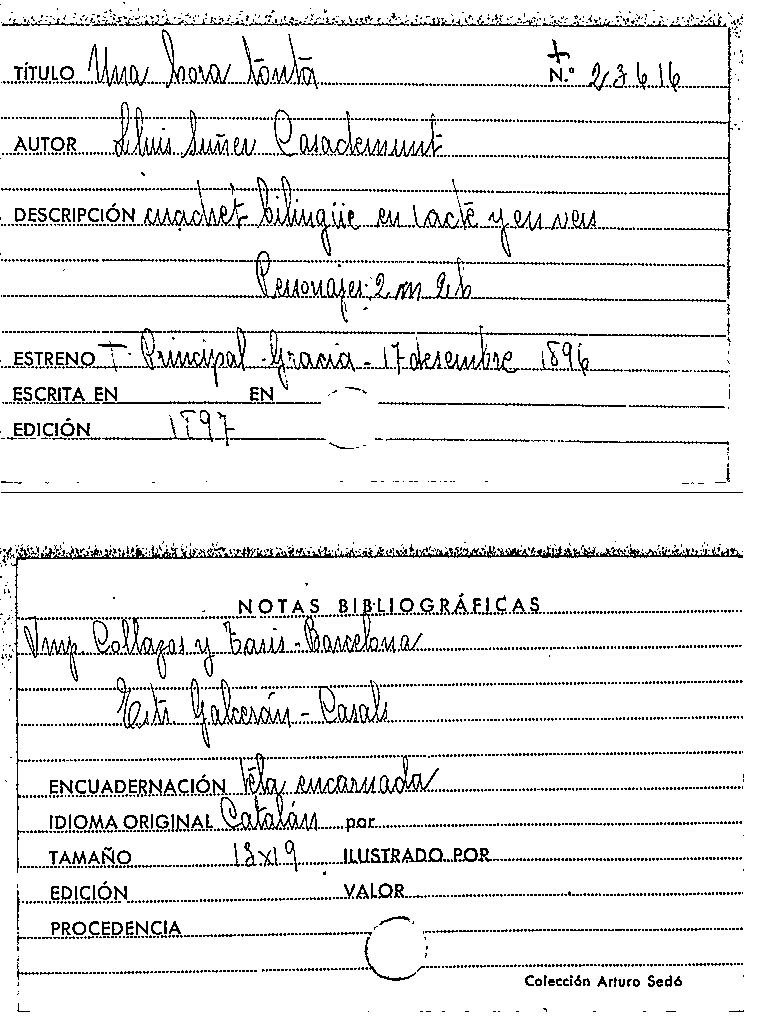 TÍTULO Una hora tonta N.º 23616
AUTOR Lluis Suñer Casademunt
DESCRIPCIÓN cuadret bilingüe en 1 acte y en vers
Personajes 2 m 2 h
ESTRENO T. Principal - Gracia - 17 desembre 1896
ESCRITA EN EN
EDICIÓN 1897
NOTAS BIBLIOGRÁFICAS
Imp Collazos y Tasis - Barcelona
Galcerán - Casals
ENCUADERNACIÓN tela encarnada
IDIOMA ORIGINAL Catalán por
TAMAÑO 13x19 ILUSTRADO POR
EDICIÓN VALOR
PROCEDENCIA
Colección Arturo Sedó